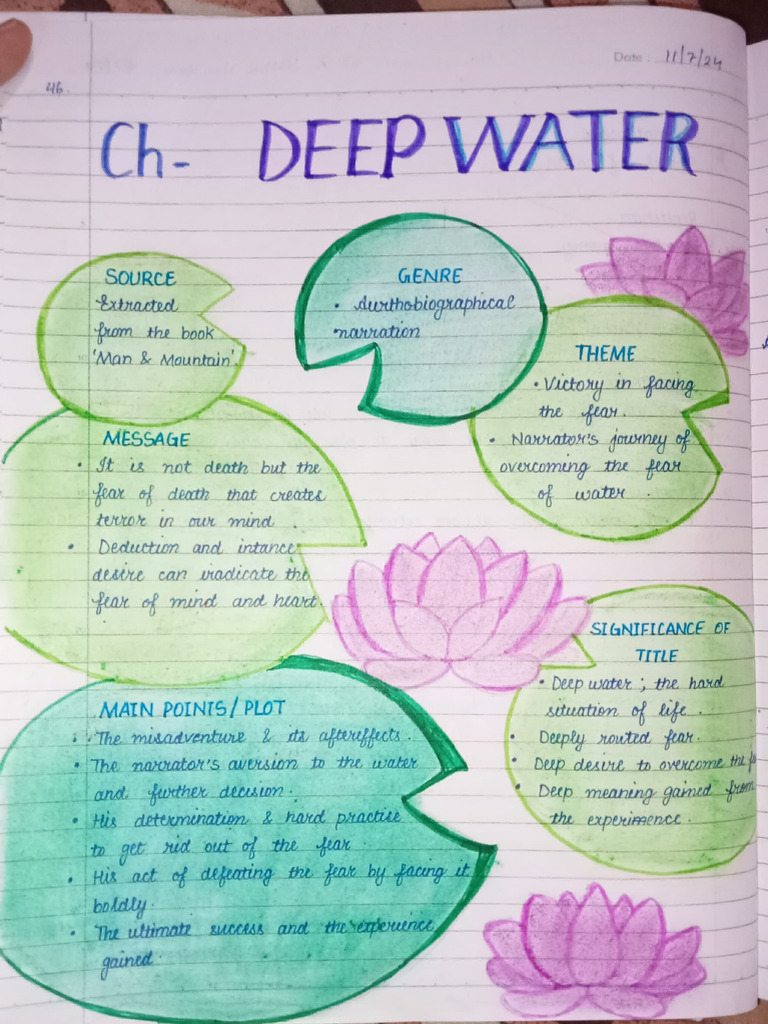 Date : 11/7/24
46.
Ch- DEEP WATER
SOURCE
Extracted
from the book
'Man & Mountain'.
GENRE
• Aurthobiographical
narration
THEME
• Victory in facing
the fear.
• Narrator's journey of
overcoming the fear
of water.
MESSAGE
• It is not death but the
fear of death that creates
terror in our mind.
• Deduction and intance
desire can iradicate the
fear of mind and heart.
SIGNIFICANCE OF
TITLE
• Deep water ; the hard
situation of life.
• Deeply routed fear.
• Deep desire to overcome the
• Deep meaning gained from
the experimence.
MAIN POINTS/PLOT
• The misadventure & its aftereffects.
• The narrator's aversion to the water
and further decision.
• His determination & hard practise
to get rid out of the fear.
• His act of defeating the fear by facing it
boldly.
• The ultimate success and the experience
gained.